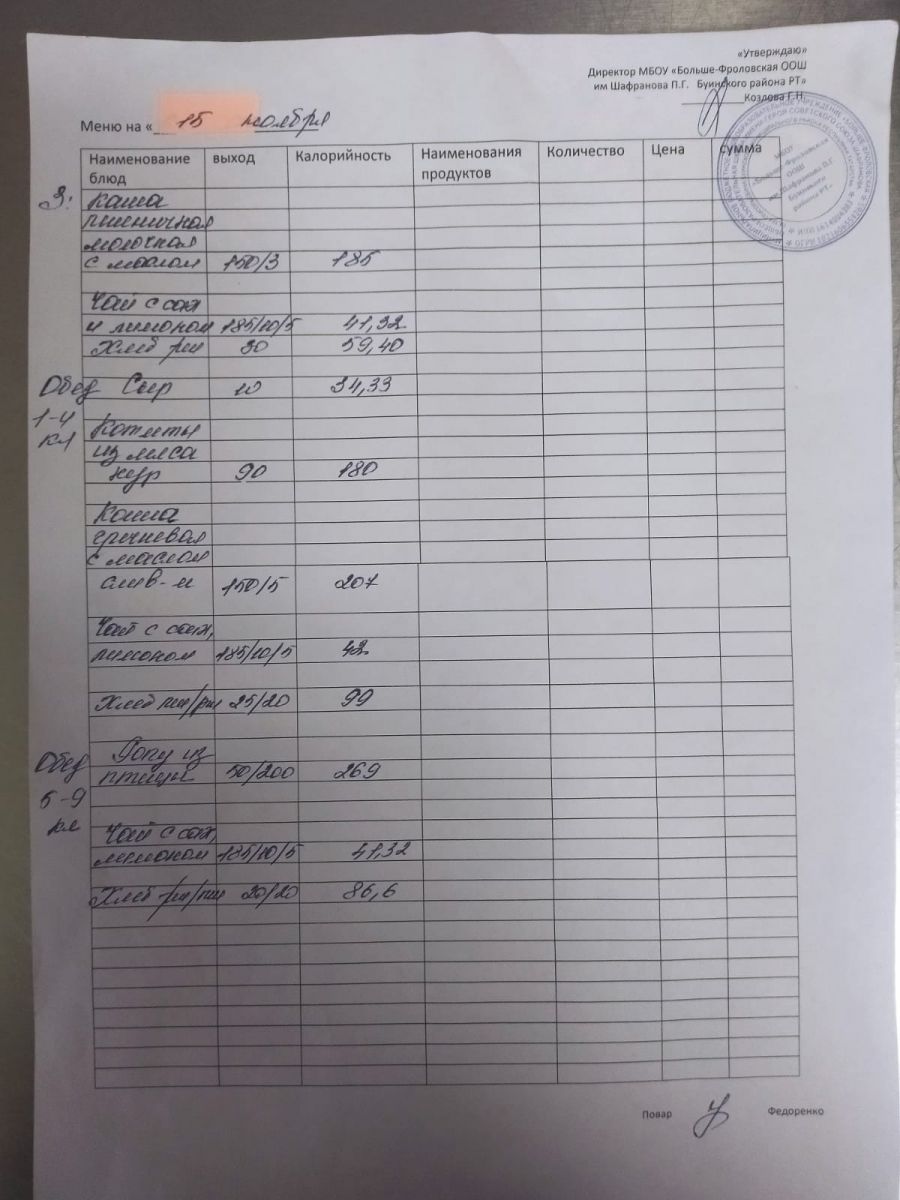 «Утверждаю»
Директор МБОУ «Больше-Фроловская ООШ
им Шафранова П.Г. Буинского района РТ»
Козлова Г.Н.
Меню на « 15 ноября
Наименование блюд выход Калорийность Наименования продуктов Количество Цена сумма
З: каша
пшеничная
молочная
с маслом 150/3 185
Чай с сах
и лимоном 185/10/5 41,32
Хлеб рж 30 59,40
Обед Сыр 10 34,33
1-4
кл Котлеты
из мяса
кур 90 180
Каша
гречневая
с маслом
слив-м 150/5 207
Чай с сах,
лимоном 185/10/5 42
Хлеб пш/рж 25/20 99
Обед Рагу из
птицы 50/200 269
5-9
кл Чай с сах,
лимоном 185/10/5 41,32
Хлеб рж/пш 20/20 86,6
Повар Федоренко
МБОУ
«Больше-Фроловская
ООШ
им Шафранова П.Г
Буинского
района РТ»